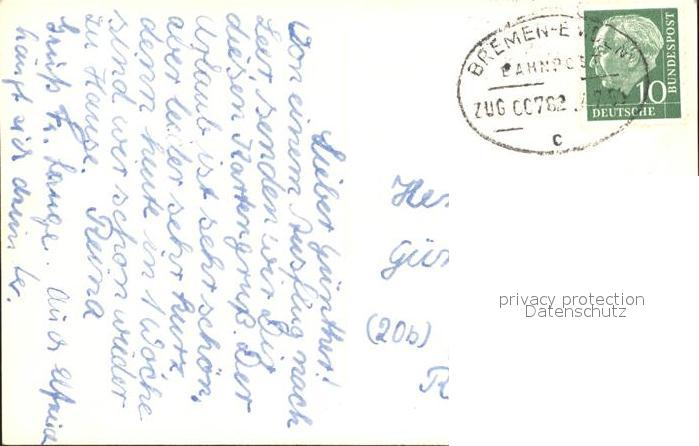 Lieber Günther!
Von einem Ausflug nach
Leer senden wir Dir
diesen Kartengruß. Der
Urlaub ist sehr schön,
aber leider sehr kurz,
denn heute in 1 Woche
sind wir schon wieder
zu Hause. Reina
Gruß Fr. Lange. Auch
hängt sich dran
Her
Gün
(20b)
R
BREMEN-EMDEN
BAHNPOST
ZUG 00782
c
10
DEUTSCHE
BUNDESPOST
privacy protection
Datenschutz